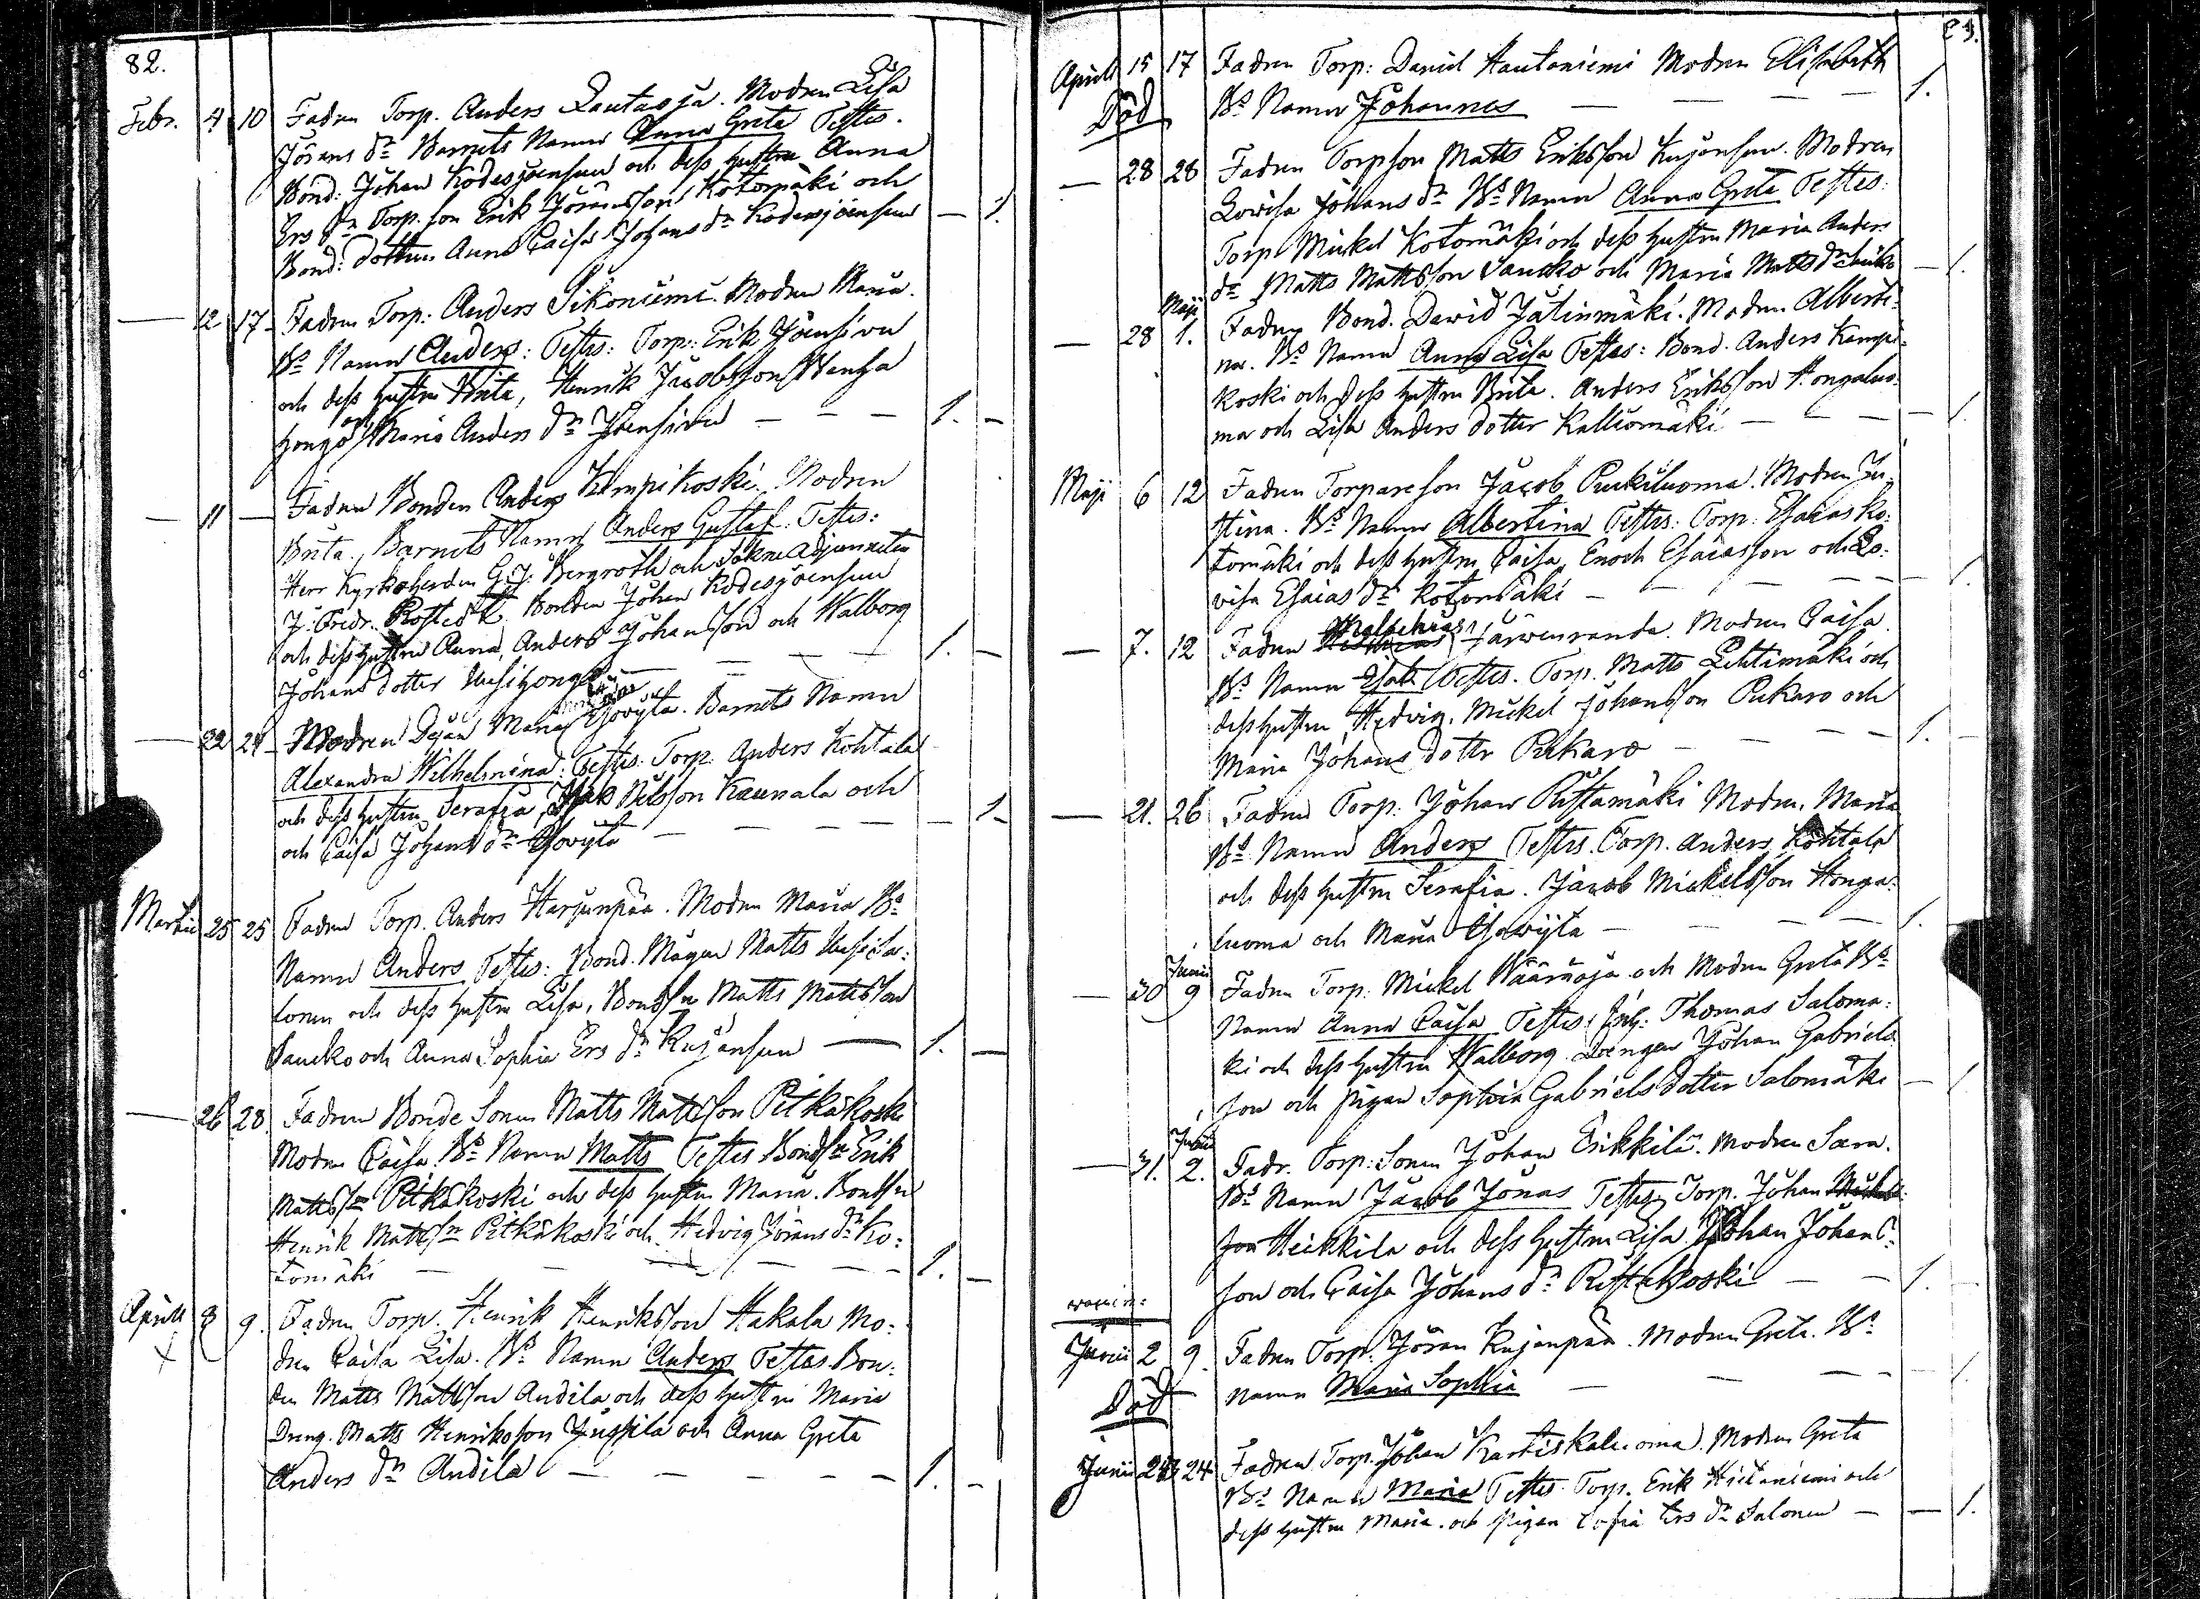 82.
Febr. 4 10 Fadren Torp. Anders Rautaoja. Modren Lisa
Jörans dr. Barnets Namn Anna Greta Testes.
Bond: Johan Kodesjoensuu och dess hustru Anna
Ers dr Torp. son Erik Jöransson Kotomäki och
Bond: dottren Anna Caisa Johans dr Kodesjoensuu — 1.
— 12 17 Fadren Torp: Anders Sikoniemi. Modren Maria.
Bs Namn Anders: Testes: Torp: Erik Joensivu
och dess hustru Brita, Henrik Jacobsson Wanha
hongo och Maria Anders dr Joensivu — — — 1. —
— 11 — Fadren Bonden Anders Kampikoski. Modren
Brita, Barnets Namn Anders Gustaf. Testes:
Herr Kyrkoherden G. J. Bergroth och Sokne Adjuncten
J. Fredr. Rostedt Bonden Johan Kodesjoensuu
och dess hustru Anna, Anders Johansson och Walborg
Johans dotter Uusihongo — — — 1. —
— 22 24 Modren Pigan Maria Yowyta. Barnets Namn
Alexandra Wilhelmina: Testes: Torp: Anders Kohtala
och dess hustru Serafia, Isak Nilsson Kaunala och
och Caisa Johans dr Yowyta — — — — 1.
Martii 25 25 Fadren Torp. Anders Harjunpää. Modren Maria Bs
Namn Anders Testes: Bond. Mågen Matts Uusisa:
lonen och dess hustru Lisa, Bondsn Matts Mattsson
Saucko och Anna Sophia Ers dr Kujansuu — 1. —
— 26 28 Fadren Bonde Sonen Matts Mattsson Pitkäkoski
Modren Caisa. Bs Namn Matts Testes Bondsn Erik
Mattssn Pitkäkoski och dess hustru Maria. Bondsn
Henrik Mattssn Pitkäkoski och Hedvig Jörans dr Ko:
tomäki — — — — — 1. —
Aprill 8 9. Fadren Torp. Henrik Henriksson Hakala Mo:
x dren Caisa Lisa. Bs Namn Anders Testes. Bon:
den Matts Mattsson Andila och dess hustru Maria
Dreng. Matts Henriksson Jussila och Anna Greta
Anders dr Andila — — — — — 1. —
83.
Aprill 15 17 Fadren Torp: Daniel Hautaniemi Modren Elisabeth
Död Bs Namn Johannes — — — 1.
— 28 28 Fadren Torpson Matts Eriksson Kujansuu. Modren
Lovisa Johans dr Bs Namn Anna Greta Testes:
Torp Mickel Kotomäki och dess hustru Maria Anders
dr Matts Mattsson Saucko och Maria Matts dr — 1.
Maji
— 28 1. Fadren Bond. David Jälinmäki. Modren Alberti:
na. Bs Namn Anna Lisa Testes: Bond. Anders Kampi:
koski och dess hustru Brita. Anders Eriksson Hongaluo:
ma och Lisa Anders dotter Kalliomäki — — — 1.
Maji 6 12 Fadren Torpareson Jacob Punkiluoma. Modren Ju:
stina. Bs Namn Albertina Testes: Torp: Esaias Ko:
tomäki och dess hustru Caisa, Enoch Esaiasson och Lo:
visa Esaias dr Kotomäki — — — — 1.
— 7. 12 Fadren Malachias Järwenranda. Modren Caisa.
Bs Namn Testes. Torp. Matts Lehtimäki och
dess hustru Hedvig. Mickel Johansson Pukaro och
Maria Johans dotter Pukaro — — — — 1.
— 21. 26 Fadren Torp. Johan Ristamäki Modren. Maria
Bs Namn Anders Testes. Torp. Anders Kohtala
och dess hustru Serafia. Jacob Mickelsson Honga:
luoma och Maria Yowyta — — — — 1.
Junii
— 30 9 Fadren Torp: Mickel Wääräoja och Modren Greta Bs
Namn Anna Caisa Testes: Inh: Thomas Saloma:
ki och dess hustru Walborg Drengen Johan Gabriels
son och Pigan Sophia Gabriels dotter Salomäki — 1.
Junii
— 31. 2. Fadr. Torp: Sonen Johan Erikkilä. Modren Sara.
Bs Namn Jacob Jonas Testes: Torp. Johan
son Heikkila och dess hustru Lisa Johan Johans:
son och Caisa Johans dr Ristakoski — — 1.
Junii 2 9. Fadren Torp: Jöran Kujanpää. Modren Greta. Bs
Död namn Maria Sophia — — — 1.
Junii 24 24 Fadren Torp. Johan Kartiskaluoma. Modren Greta
Bs Namn Maria Testes. Torp. Erik Hietaniemi och
dess hustru Maria. och Pigan Sofia Ers dr Salonen — — 1.